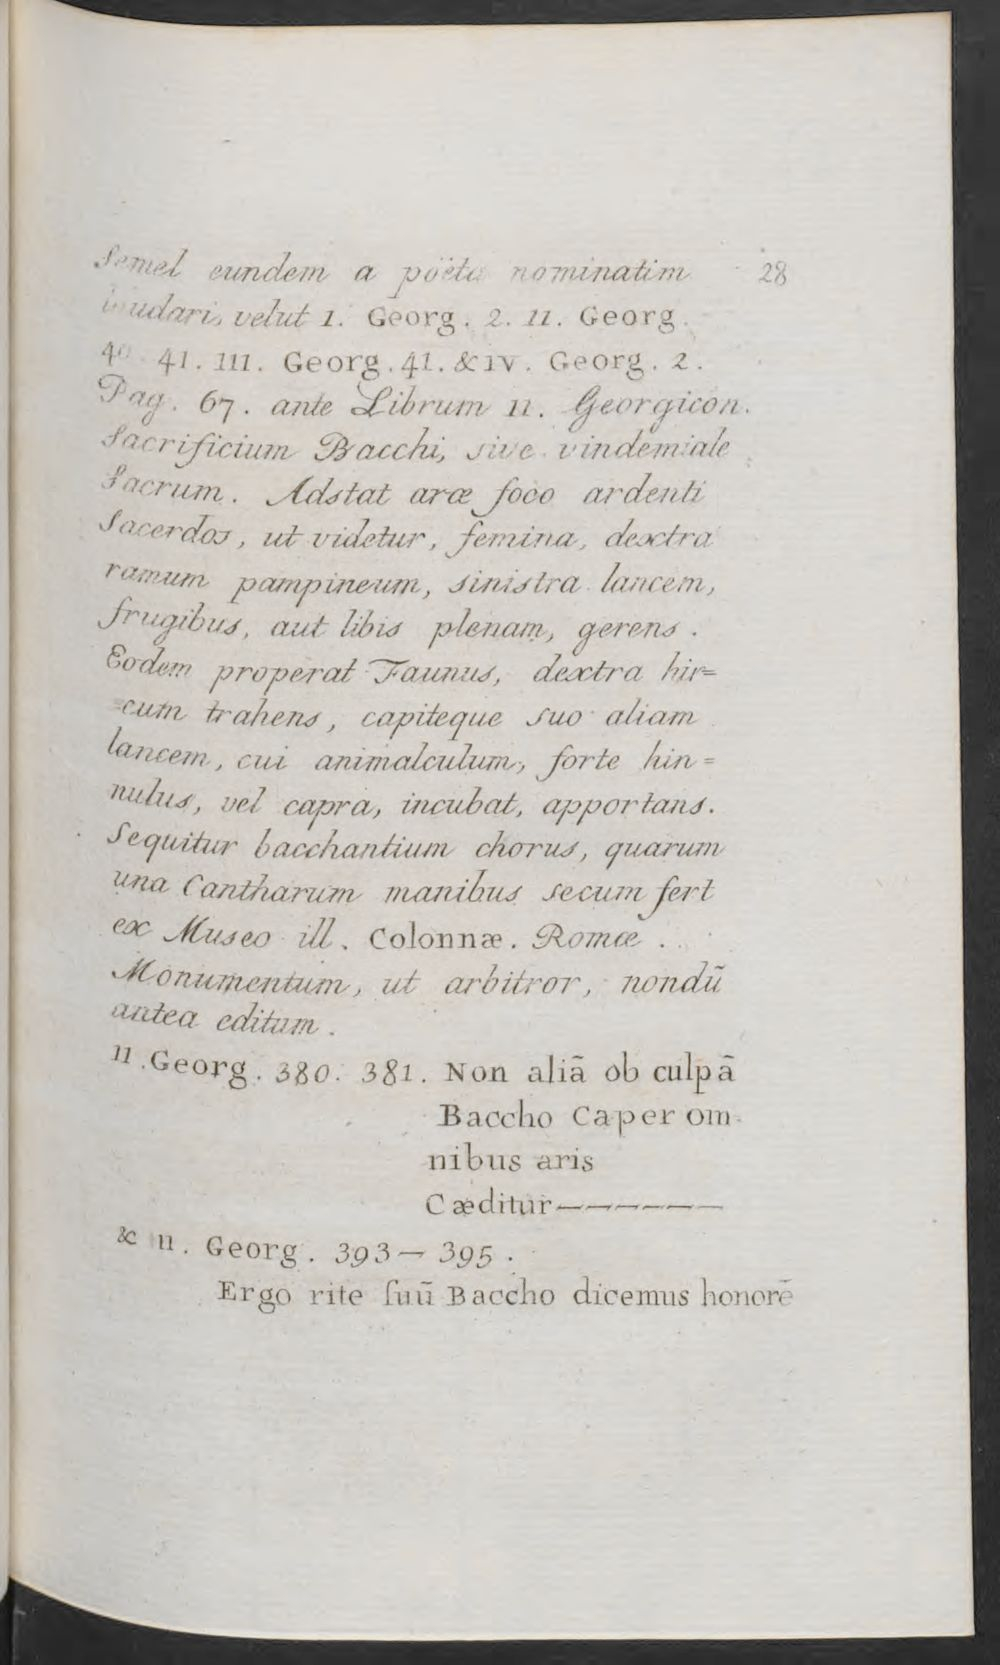 Semel eundem a poëta nominatim 28
laudari, velut 1. Georg. 2. 11. Georg.
40 41. 111. Georg. 41. & 1v. Georg. 2.
Pag. 67. ante Librum 11. Georgicon.
Sacrificium Bacchi, sive vindemiale
Sacrum. Adstat aræ foco ardenti
Sacerdos, ut videtur, femina, dextra
ramum pampineum, sinistra lancem,
frugibus, aut libis plenam, gerens.
Eodem properat Faunus, dextra hir=
=cum trahens, capiteque suo aliam
lancem, cui animalculum, forte hin=
nulus, vel capra, incubat, apportans.
Sequitur bacchantium chorus, quarum
una Cantharum manibus secum fert
ex Museo ill. Colonnæ. Romæ ..
Monumentum, ut arbitror, nondū
antea editum.
11. Georg. 380. 381. Non aliā ob culpā
Baccho Caper om-
nibus aris
Cæditur——————
& 11. Georg. 393— 395.
Ergo rite ſuū Baccho dicemus honorē